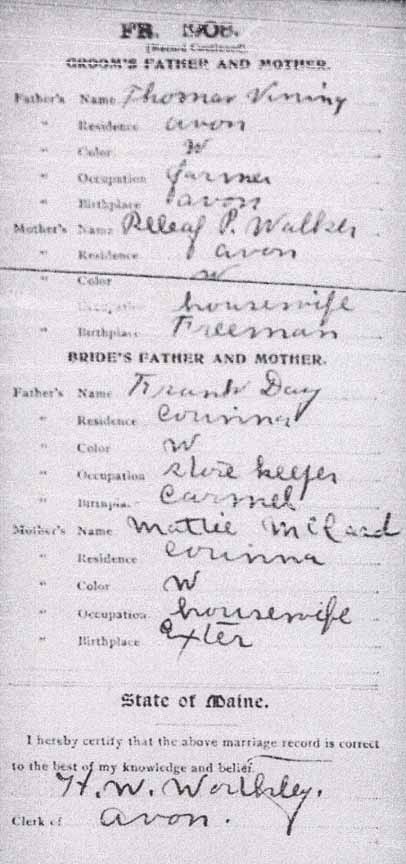 FR. 1908.
(Record Continued)
GROOM'S FATHER AND MOTHER.
Father's Name Thomas Vining
" Residence avon
" Color W
" Occupation farmer
" Birthplace avon
Mother's Name Releaf P. Walker
" Residence avon
" Color W
Occupation housewife
" Birthplace Freeman
BRIDE'S FATHER AND MOTHER.
Father's Name Frank Day
" Residence Corinna
" Color W
" Occupation store keeper
" Birthplace Carmel
Mother's Name Mattie
" Residence Corinna
" Color W
" Occupation housewife
" Birthplace Exter
State of Maine.
I hereby certify that the above marriage record is correct
to the best of my knowledge and belief.
H. W. Worthley.
Clerk of avon.